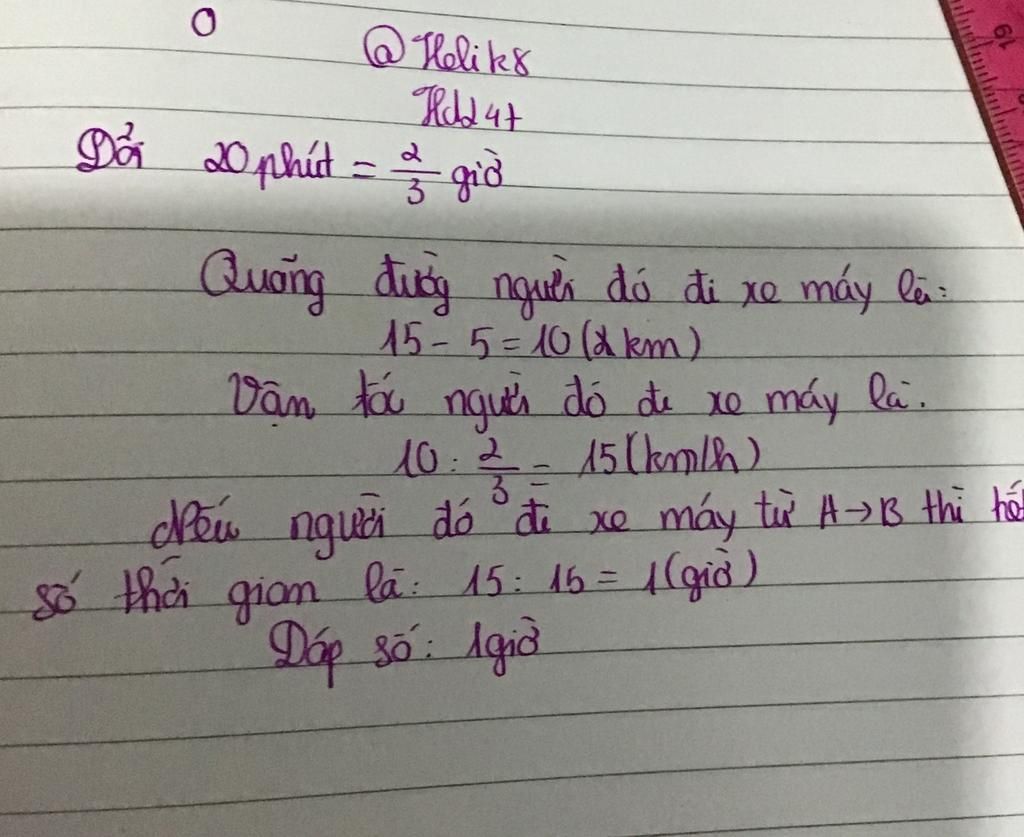 O
@Helik8
Hdd4t
Đổi 20 phút = 2/3 giờ
Quãng đường người đó đi xe máy là:
15 - 5 = 10 (2km)
Vận tốc người đó đi xe máy là:
10 : 2/3 = 15 (km/h)
Nếu người đó đi xe máy từ A→B thì hết
số thời gian là: 15 : 15 = 1 (giờ)
Đáp số: 1 giờ
19